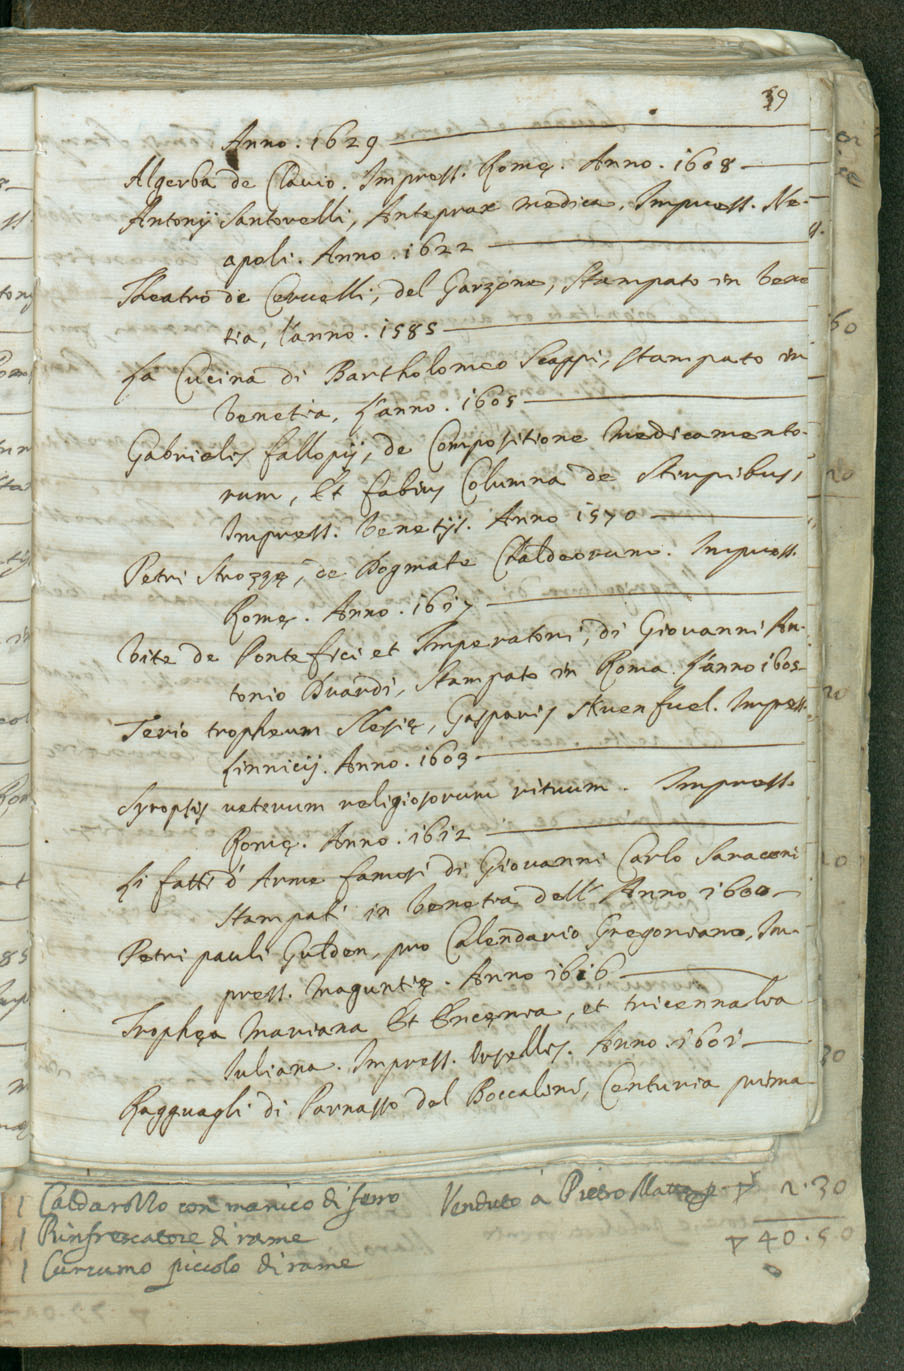 39
Anno. 1629
Algerba de Clavio. Impress. Romę. Anno. 1608
Antonij Santorelli, Anteprax medica, Impress. Ne-
apoli. Anno. 1622
Theatro de Cervelli, del Garzone, Stampato in Vene
tia, l'anno. 1585
La Cucina di Bartholomeo Scappi, stampato in
Venetia, l'anno. 1605
Gabrielis fallopij, de Compositione Medicamento-
rum, Et fabius Columna de Stirpibus,
Impress. Venetijs. Anno 1570
Petri Strozzę, de Dogmate Chaldeorum. Impress.
Romę. Anno. 1617
Vite de Pontefici et Imperatori, di Giovanni An-
tonio Duardi, Stampato in Roma. l'anno 1605
Serio tropheum Slesię, Gasparis Skuenfuel. Impress.
Linnicij. Anno. 1603
Synopsis veterum religiosorum rituum. Impress.
Romę. Anno. 1612
Li fatti d'Arme famosi di Giovanni Carlo Saraceni
Stampati in Venetia dell'Anno 1600
Petri pauli Gulden, pro Calendario Gregoriano, Im-
press. Maguntię. Anno 1616
Trophęa Mariana Et Encęnia, et tricennalia
Iuliana. Impress. Ursellis. Anno. 1601
Ragguagli di Parnasso del Boccalini, Centuria prima
1 Caldarozzo con manico di ferro Venduto à Pietro 2.30
1 Rinfrescatore di rame 40.50
1 Cuccumo piccolo di rame